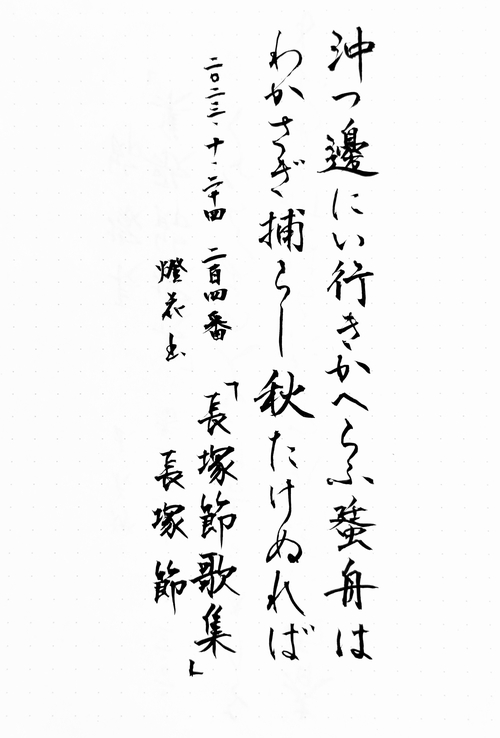 沖つ邊にい行きかへらふ蜑舟は
わかさぎ捕らし秋たけぬれば
二〇二三、十、二十四 二百四番 「長塚節歌集」
燈花书 長塚 節